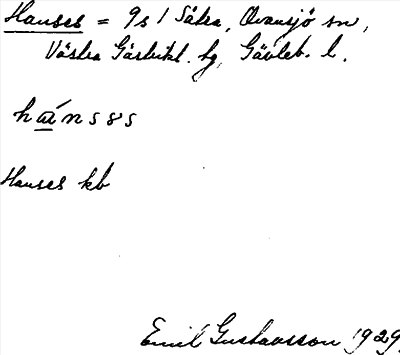 Hanses = 9s1 Säkra, Ovansjö sn,
Västra Gästrikl. hg, Gävleb. l.
hánsɜs
Hanses kb
Emil Gustavsson 1929.